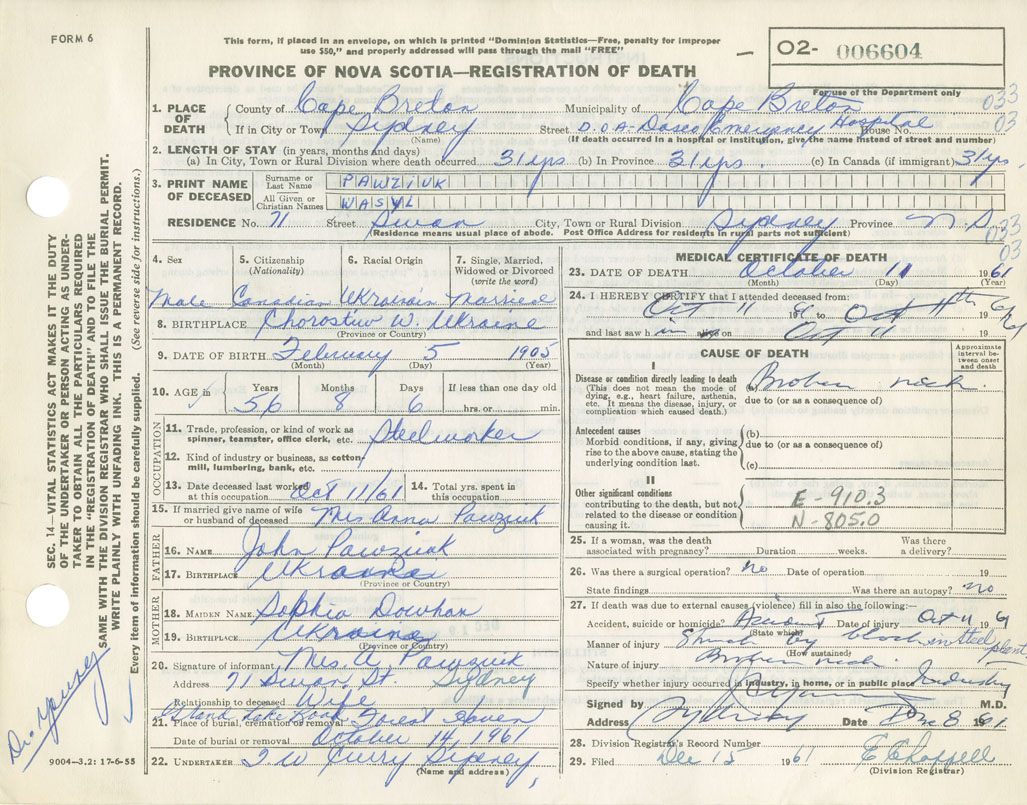 FORM 6
This form, if placed in an envelope, on which is printed "Dominion Statistics—Free, penalty for improper
use $50," and properly addressed will pass through the mail "FREE"
PROVINCE OF NOVA SCOTIA—REGISTRATION OF DEATH
02- 006604
For use of the Department only
033
03
1. PLACE OF DEATH County of Cape Breton Municipality of Cape Breton
If in City or Town Sydney Street D.O.A-Dosco Emergency Hospital House No.
(Name) (If death occurred in a hospital or institution, give the name instead of street and number)
2. LENGTH OF STAY (in years, months and days)
(a) In City, Town or Rural Division where death occurred 31 yrs (b) In Province 31 yrs. (c) In Canada (if immigrant) 31 yrs.
3. PRINT NAME OF DECEASED Surname or Last Name PAWZIUK
All Given or Christian Names WASYL
RESIDENCE No. 71 Street Swan City, Town or Rural Division Sydney Province N.S
(Residence means usual place of abode. Post Office Address for residents in rural parts not sufficient)
033
03
4. Sex 5. Citizenship (Nationality) 6. Racial Origin 7. Single, Married, Widowed or Divorced (write the word)
Male Canadian Ukrain Married
8. BIRTHPLACE Chorostiw W. Ukraine
(Province or Country)
9. DATE OF BIRTH February 5 1905
(Month) (Day) (Year)
10. AGE in Years Months Days If less than one day old
56 8 6 hrs. or min.
OCCUPATION
11. Trade, profession, or kind of work as spinner, teamster, office clerk, etc. Steelworker
12. Kind of industry or business, as cotton mill, lumbering, bank, etc.
13. Date deceased last worked at this occupation Oct 11/61 14. Total yrs. spent in this occupation
15. If married give name of wife or husband of deceased Mrs Anna Pawziuk
FATHER
16. NAME John Pawziuk
17. BIRTHPLACE Ukraine
(Province or Country)
MOTHER
18. MAIDEN NAME Sophia Dowhan
19. BIRTHPLACE Ukraine
(Province or Country)
20. Signature of informant Mrs. A. Pawziuk
Address 71 Swan St. Sydney
Relationship to deceased Wife
21. Place of burial, cremation or removal Forest Haven
Date of burial or removal October 14, 1961
22. UNDERTAKER T. W Curry Sydney,
(Name and address)
MEDICAL CERTIFICATE OF DEATH
23. DATE OF DEATH October 11 1961
(Month) (Day) (Year)
24. I HEREBY CERTIFY that I attended deceased from:
Oct 11 1961 to Oct 11th 1961
and last saw him alive on Oct 11 19 61
CAUSE OF DEATH
Approximate interval between onset and death
I
Disease or condition directly leading to death (a) Broken neck.
(This does not mean the mode of dying, e.g., heart failure, asthenia, etc. It means the disease, injury, or complication which caused death.)
due to (or as a consequence of)
Antecedent causes
Morbid conditions, if any, giving rise to the above cause, stating the underlying condition last.
(b)
due to (or as a consequence of)
(c)
II
Other significant conditions
contributing to the death, but not related to the disease or condition causing it.
E-910.3
N-805.0
25. If a woman, was the death associated with pregnancy? Duration weeks. Was there a delivery?
26. Was there a surgical operation? No Date of operation 19
State findings Was there an autopsy? no
27. If death was due to external causes (violence) fill in also the following:—
Accident, suicide or homicide? Accident Date of injury Oct 11 1961
(State which)
Manner of injury Struck by block in steel plant
(How sustained)
Nature of injury Broken neck.
Specify whether injury occurred in industry, in home, or in public place Industry
Signed by M.D.
Address Sydney Date Dec 8 1961
28. Division Registrar's Record Number
29. Filed Dec 15 1961 E Chappell
(Division Registrar)
9004—3.2: 17-6-55
SEC. 14—VITAL STATISTICS ACT MAKES IT THE DUTY
OF THE UNDERTAKER OR PERSON ACTING AS UNDER-
TAKER TO OBTAIN ALL THE PARTICULARS REQUIRED
IN THE "REGISTRATION OF DEATH" AND TO FILE THE
SAME WITH THE DIVISION REGISTRAR WHO SHALL ISSUE THE BURIAL PERMIT.
WRITE PLAINLY WITH UNFADING INK. THIS IS A PERMANENT RECORD.
Every item of information should be carefully supplied. (See reverse side for instructions.)
Dr. Young